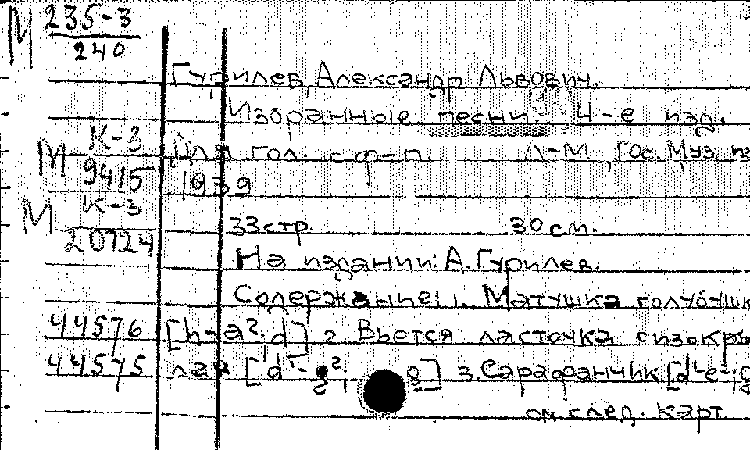 М 235-3
240
Гурилев, Александр Львович.
Избранные песни. 4-е изд.
К-3
М Для гол. с ф-п. Л-М, Гос. Муз. из
9415 1939
К-3
М 33 стр. 30 см.
20724
На издании: А. Гурилев.
Содержание: 1. Матушка голубушк
44576 [h-a²·d] 2. Вьется ласточка сизокры
44575 лая 3. Сарафанчик
см. след. карт.